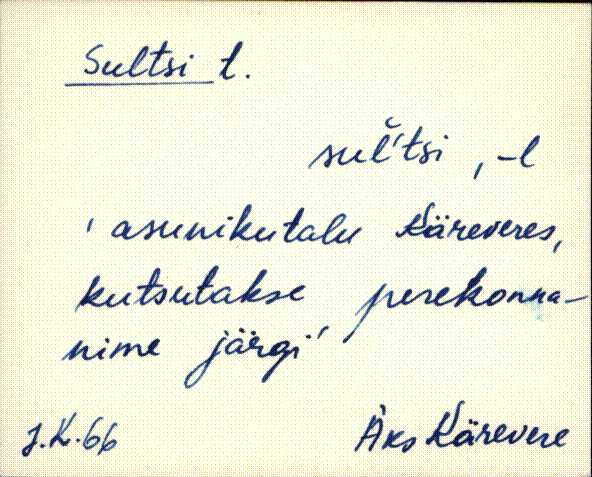 Sultsi t.
sul̆'tsi , -l
' asunikutalu Käreveres,
kutsutakse perekonna-
nime järgi'
J.K.66 Äks Kärevere